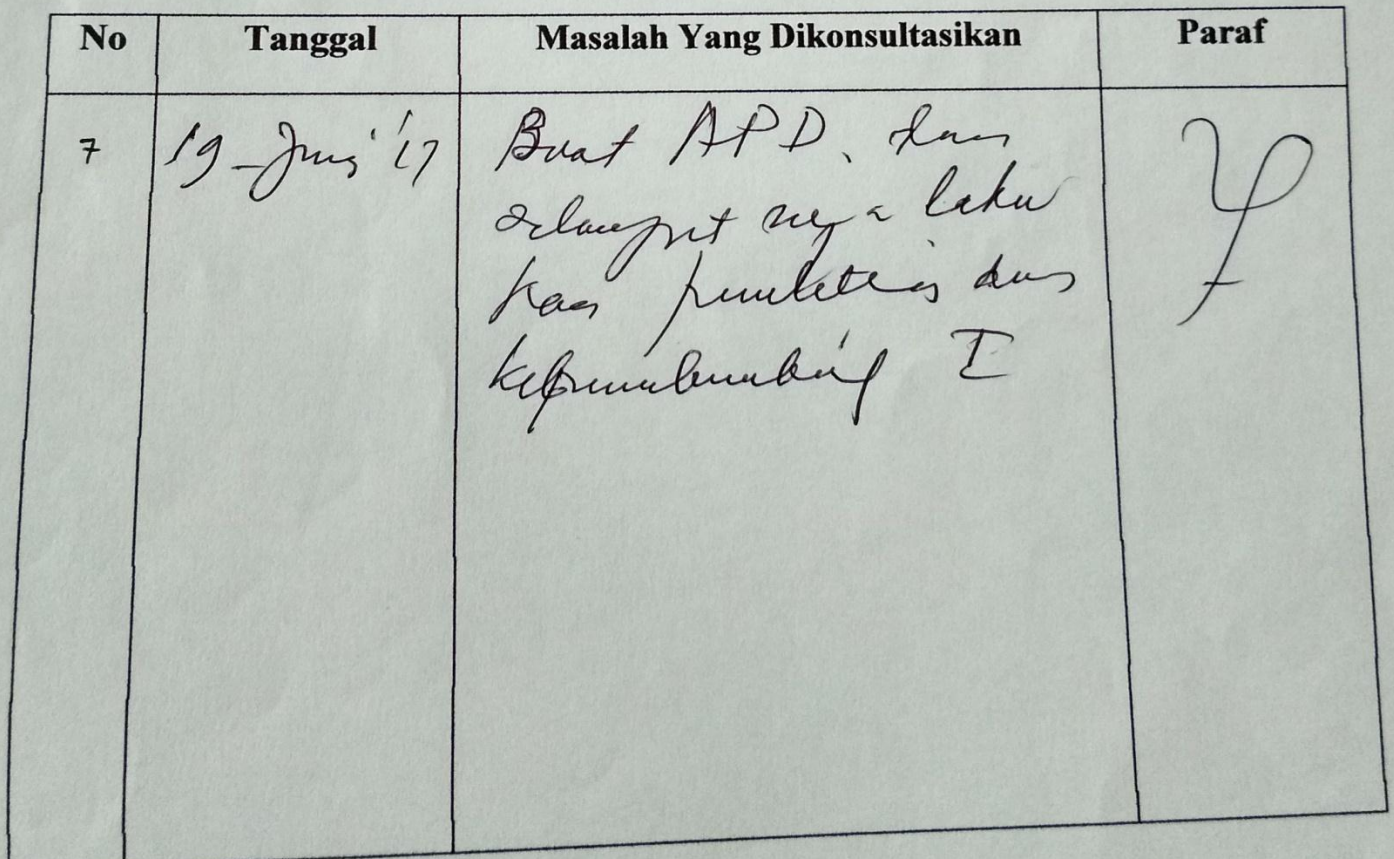 No Tanggal Masalah Yang Dikonsultasikan Paraf
7 19-Juni '17 Buat APD. dan
selanjutnya laku
kan penelitian dan
kepembimbing I